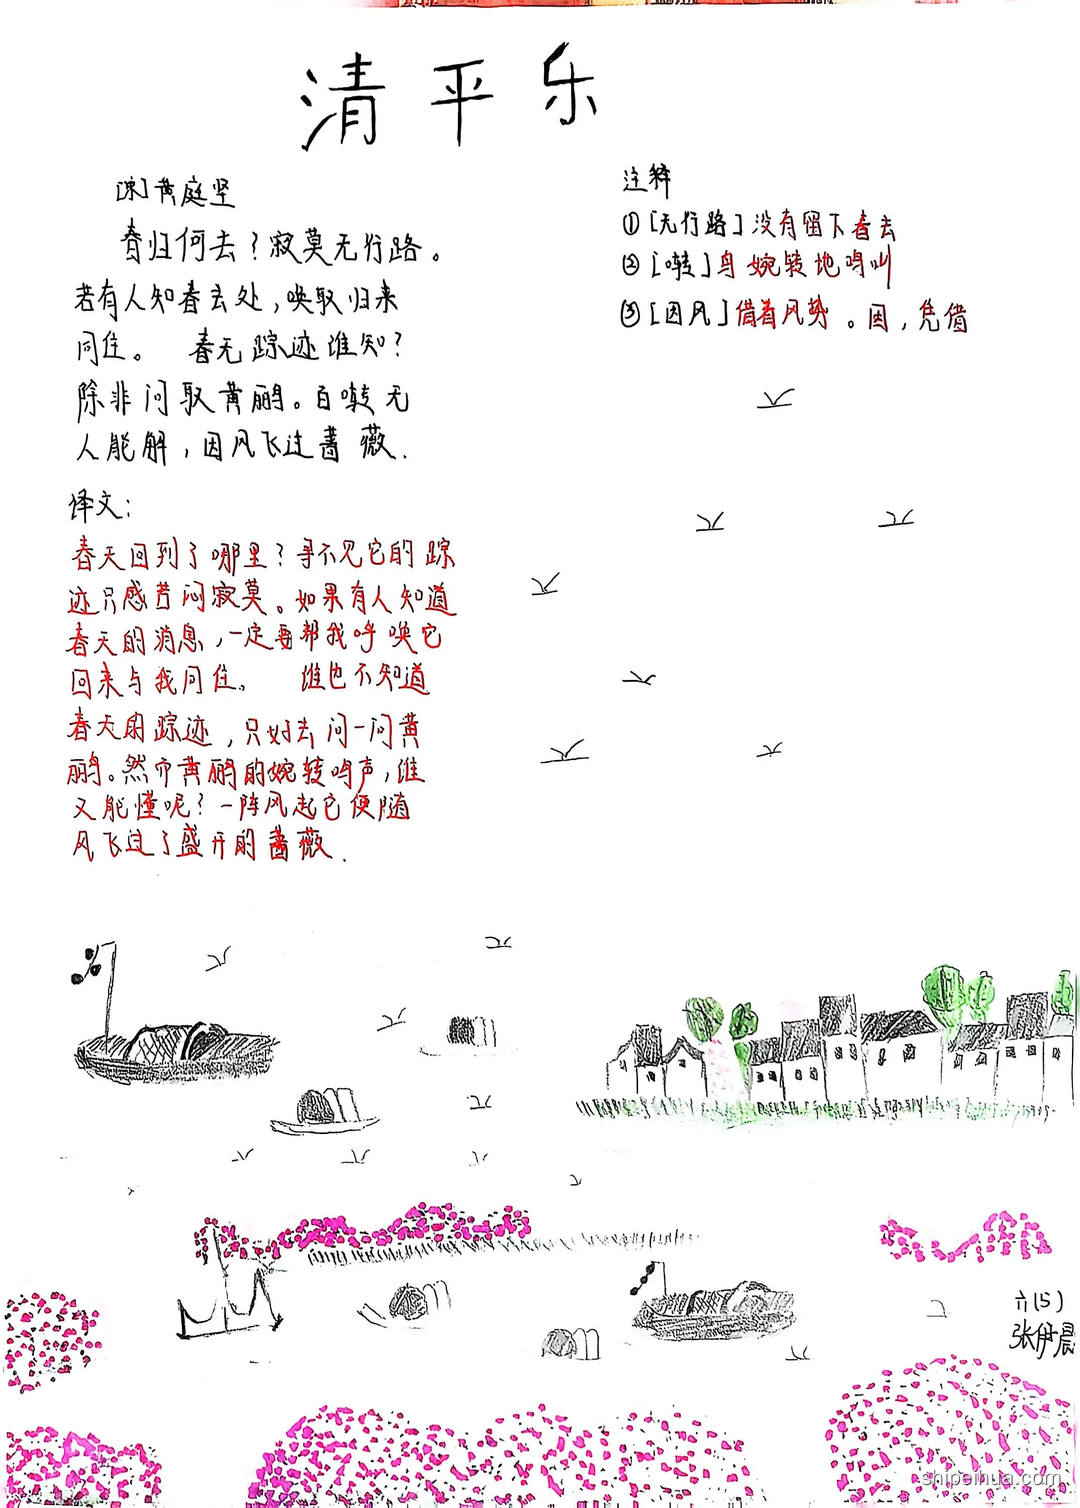 清平乐
[宋]黄庭坚
春归何去?寂莫无行路。
若有人知春去处,唤取归来
同住。 春无踪迹谁知?
除非问取黄鹂。百啭无
人能解,因风飞过蔷薇.
译文:
春天回到了哪里?寻不见它的踪
迹只感苦闷寂莫。如果有人知道
春天的消息,一定要帮我呼唤它
回来与我同住。 谁也不知道
春天的踪迹,只好去问一问黄
鹂。然而黄鹂的婉转鸣声,谁
又能懂呢?一阵风起它便随
风飞过了盛开的蔷薇.
注释
①[无行路]没有留下春去
②[啭]鸟婉转地鸣叫
③[因风]借着风势。因,凭借
六(5)
张伊晨
shipeihua.com